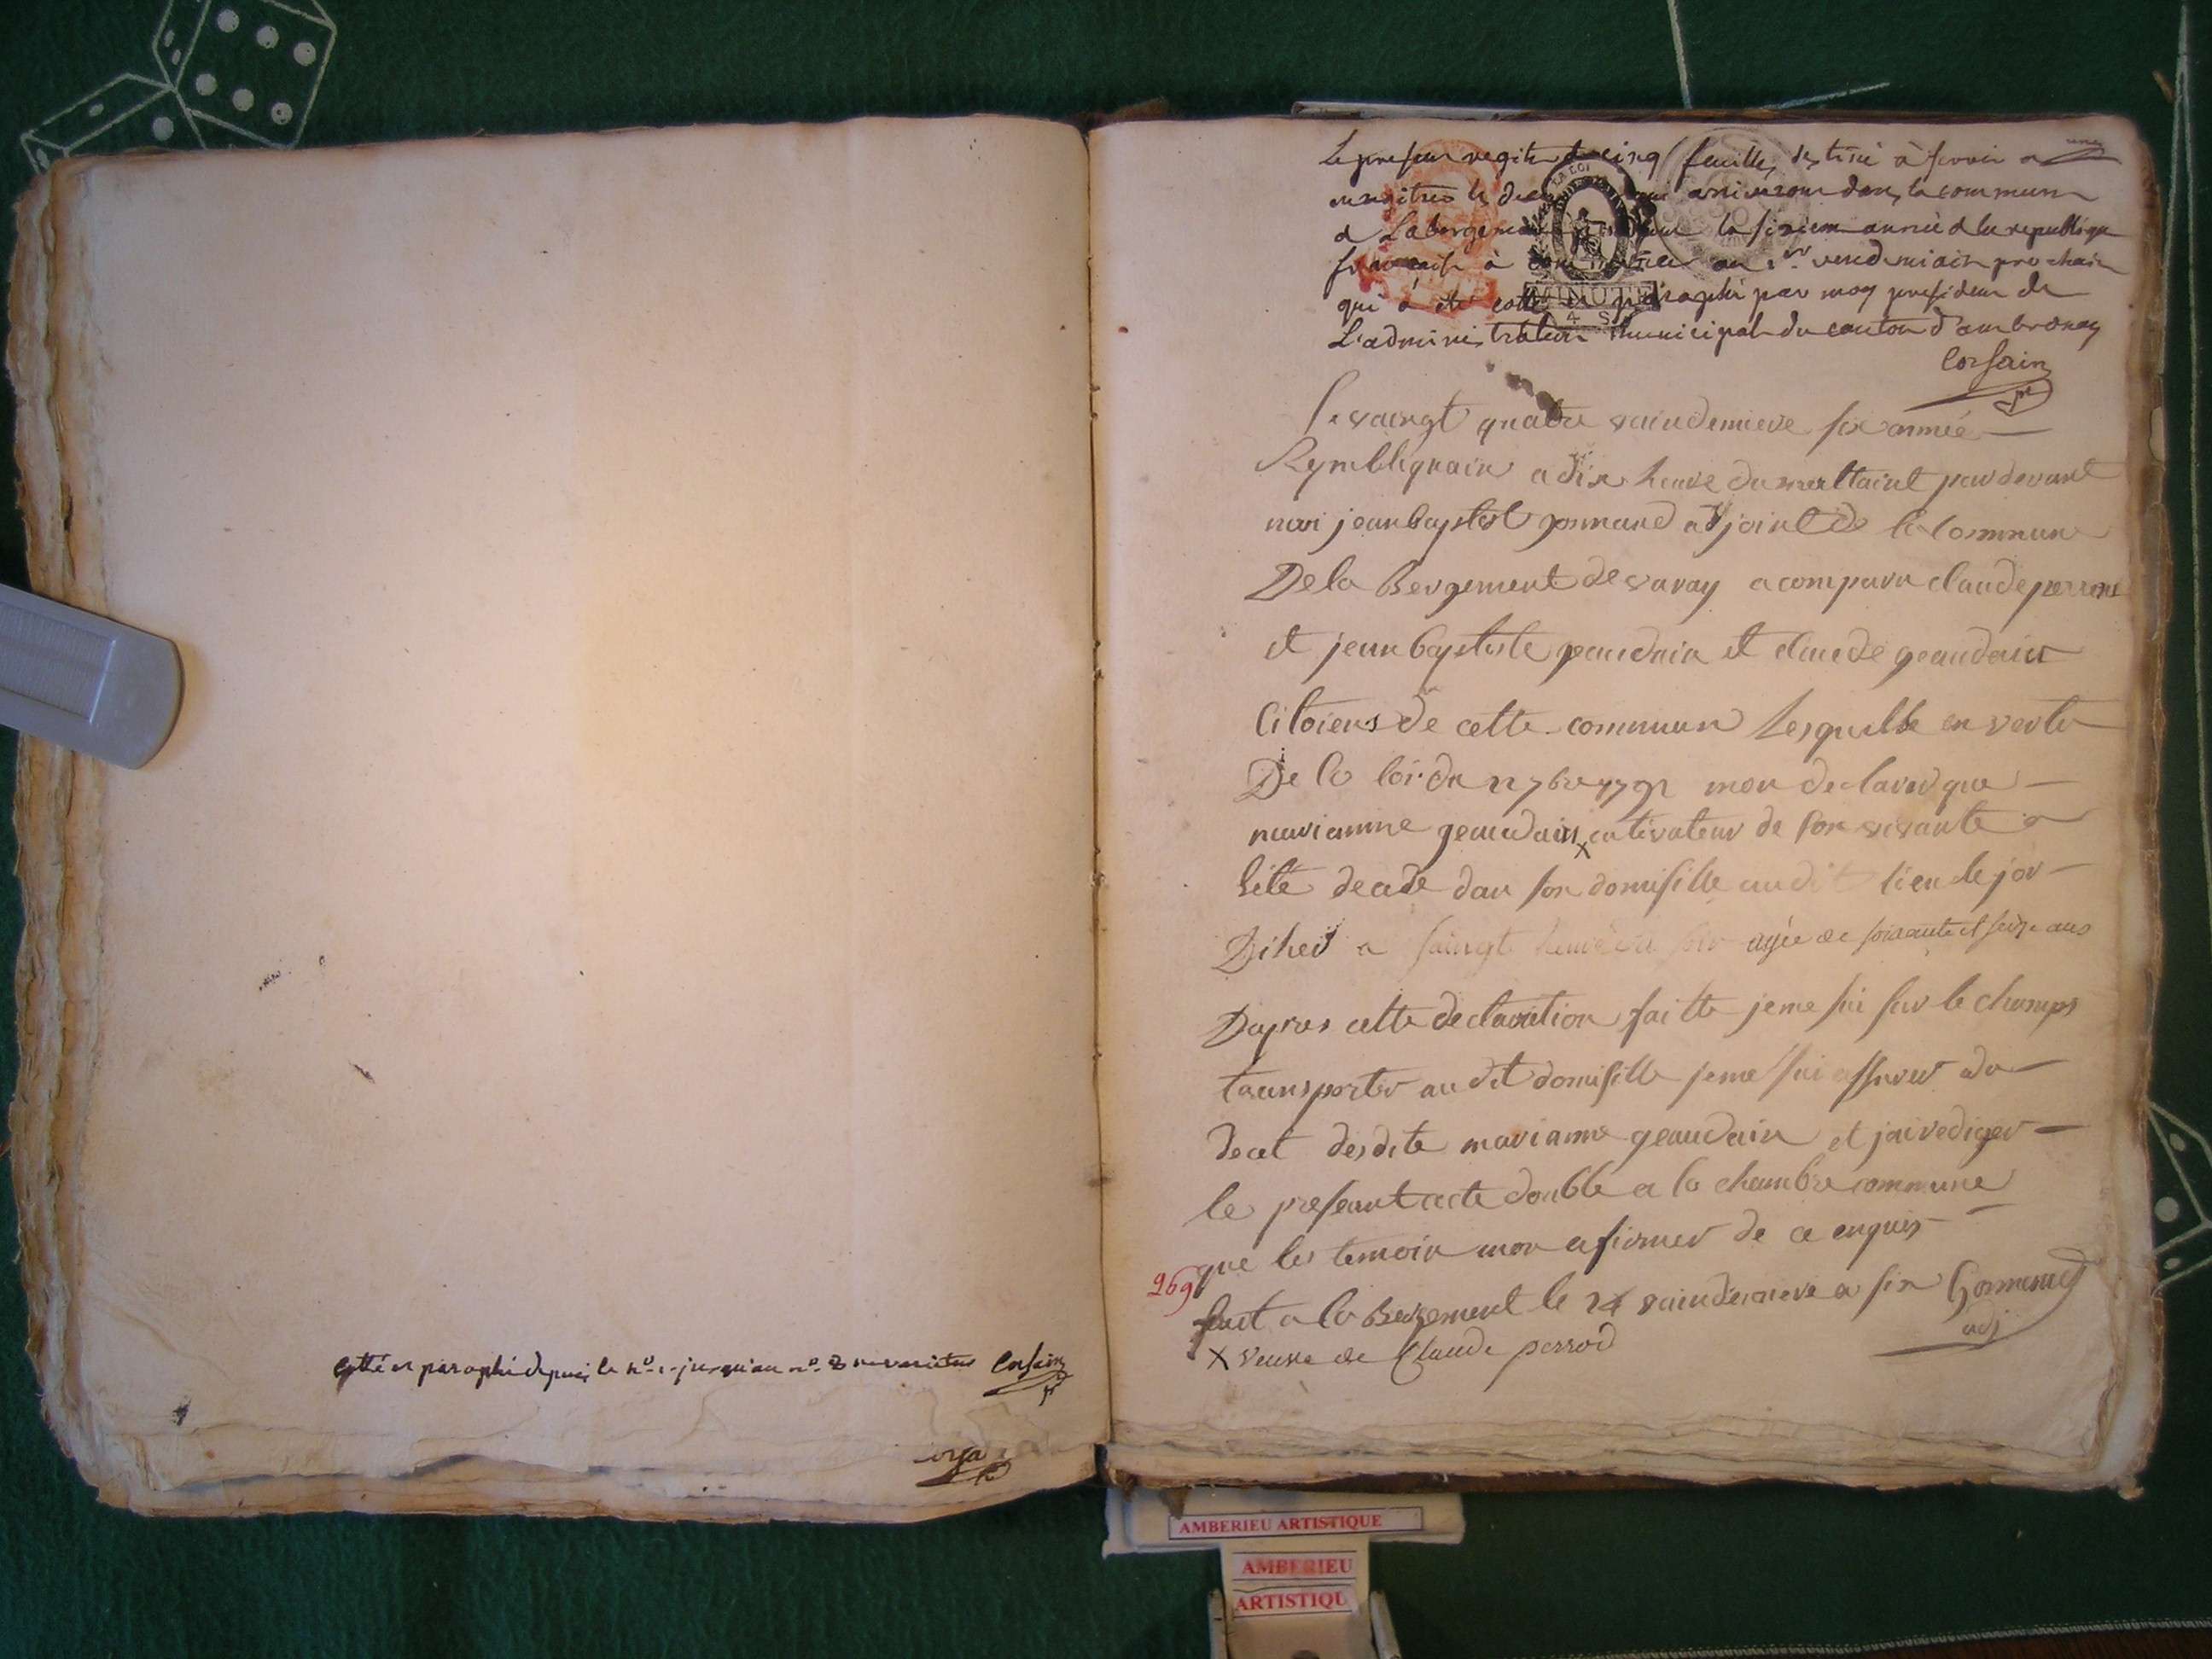 cotté et paraphé depuis le n°. 1. jusqu'au n°. ne varietur Corsain
Le present registre de cinq feuilles destiné à servir a
enregitrer les dece qui arriveront dans la commune
de Labergement la sixiem année de la republique
francaise à commencer au 1er vendemiair prochain
qui a été cotté et paraphé par moy president de
L'administration municipale du canton d'ambronay
Corsain
LA LOI
MINUTE
4 S.
Le vaingt quatre vaindemiere six année
Republiquain a dix heure du mattaint pardevant
moi jean baptist gormand adjoint de la commun
De la Bergement de varay a comparu claude perrou
et jean baptiste geaudain et claude geaudain
Citoiens de cette commun Lesquelle en vertu
De la loi du mon declarer que
mariamne geaudain x cutivateur de son vivante a
été decede dan son domisille audit lieu le jor
D'iher a vaingt heure du soir agée de soixante et seize ans
Dapres cette declaration faitte jeme sui sur le champs
transporter au dit domisille jeme sui assurer du
decet desdite marianne geaudain et jai rediger
le preseant acte double a la chambre commune
que les temoin mon afirmer de ce enquis
269
fait a la Bergement le 24 vaindemiere a six Gormand
adj
x veuve de Claude perrod
AMBERIEU ARTISTIQUE
AMBERIEU
ARTISTIQU